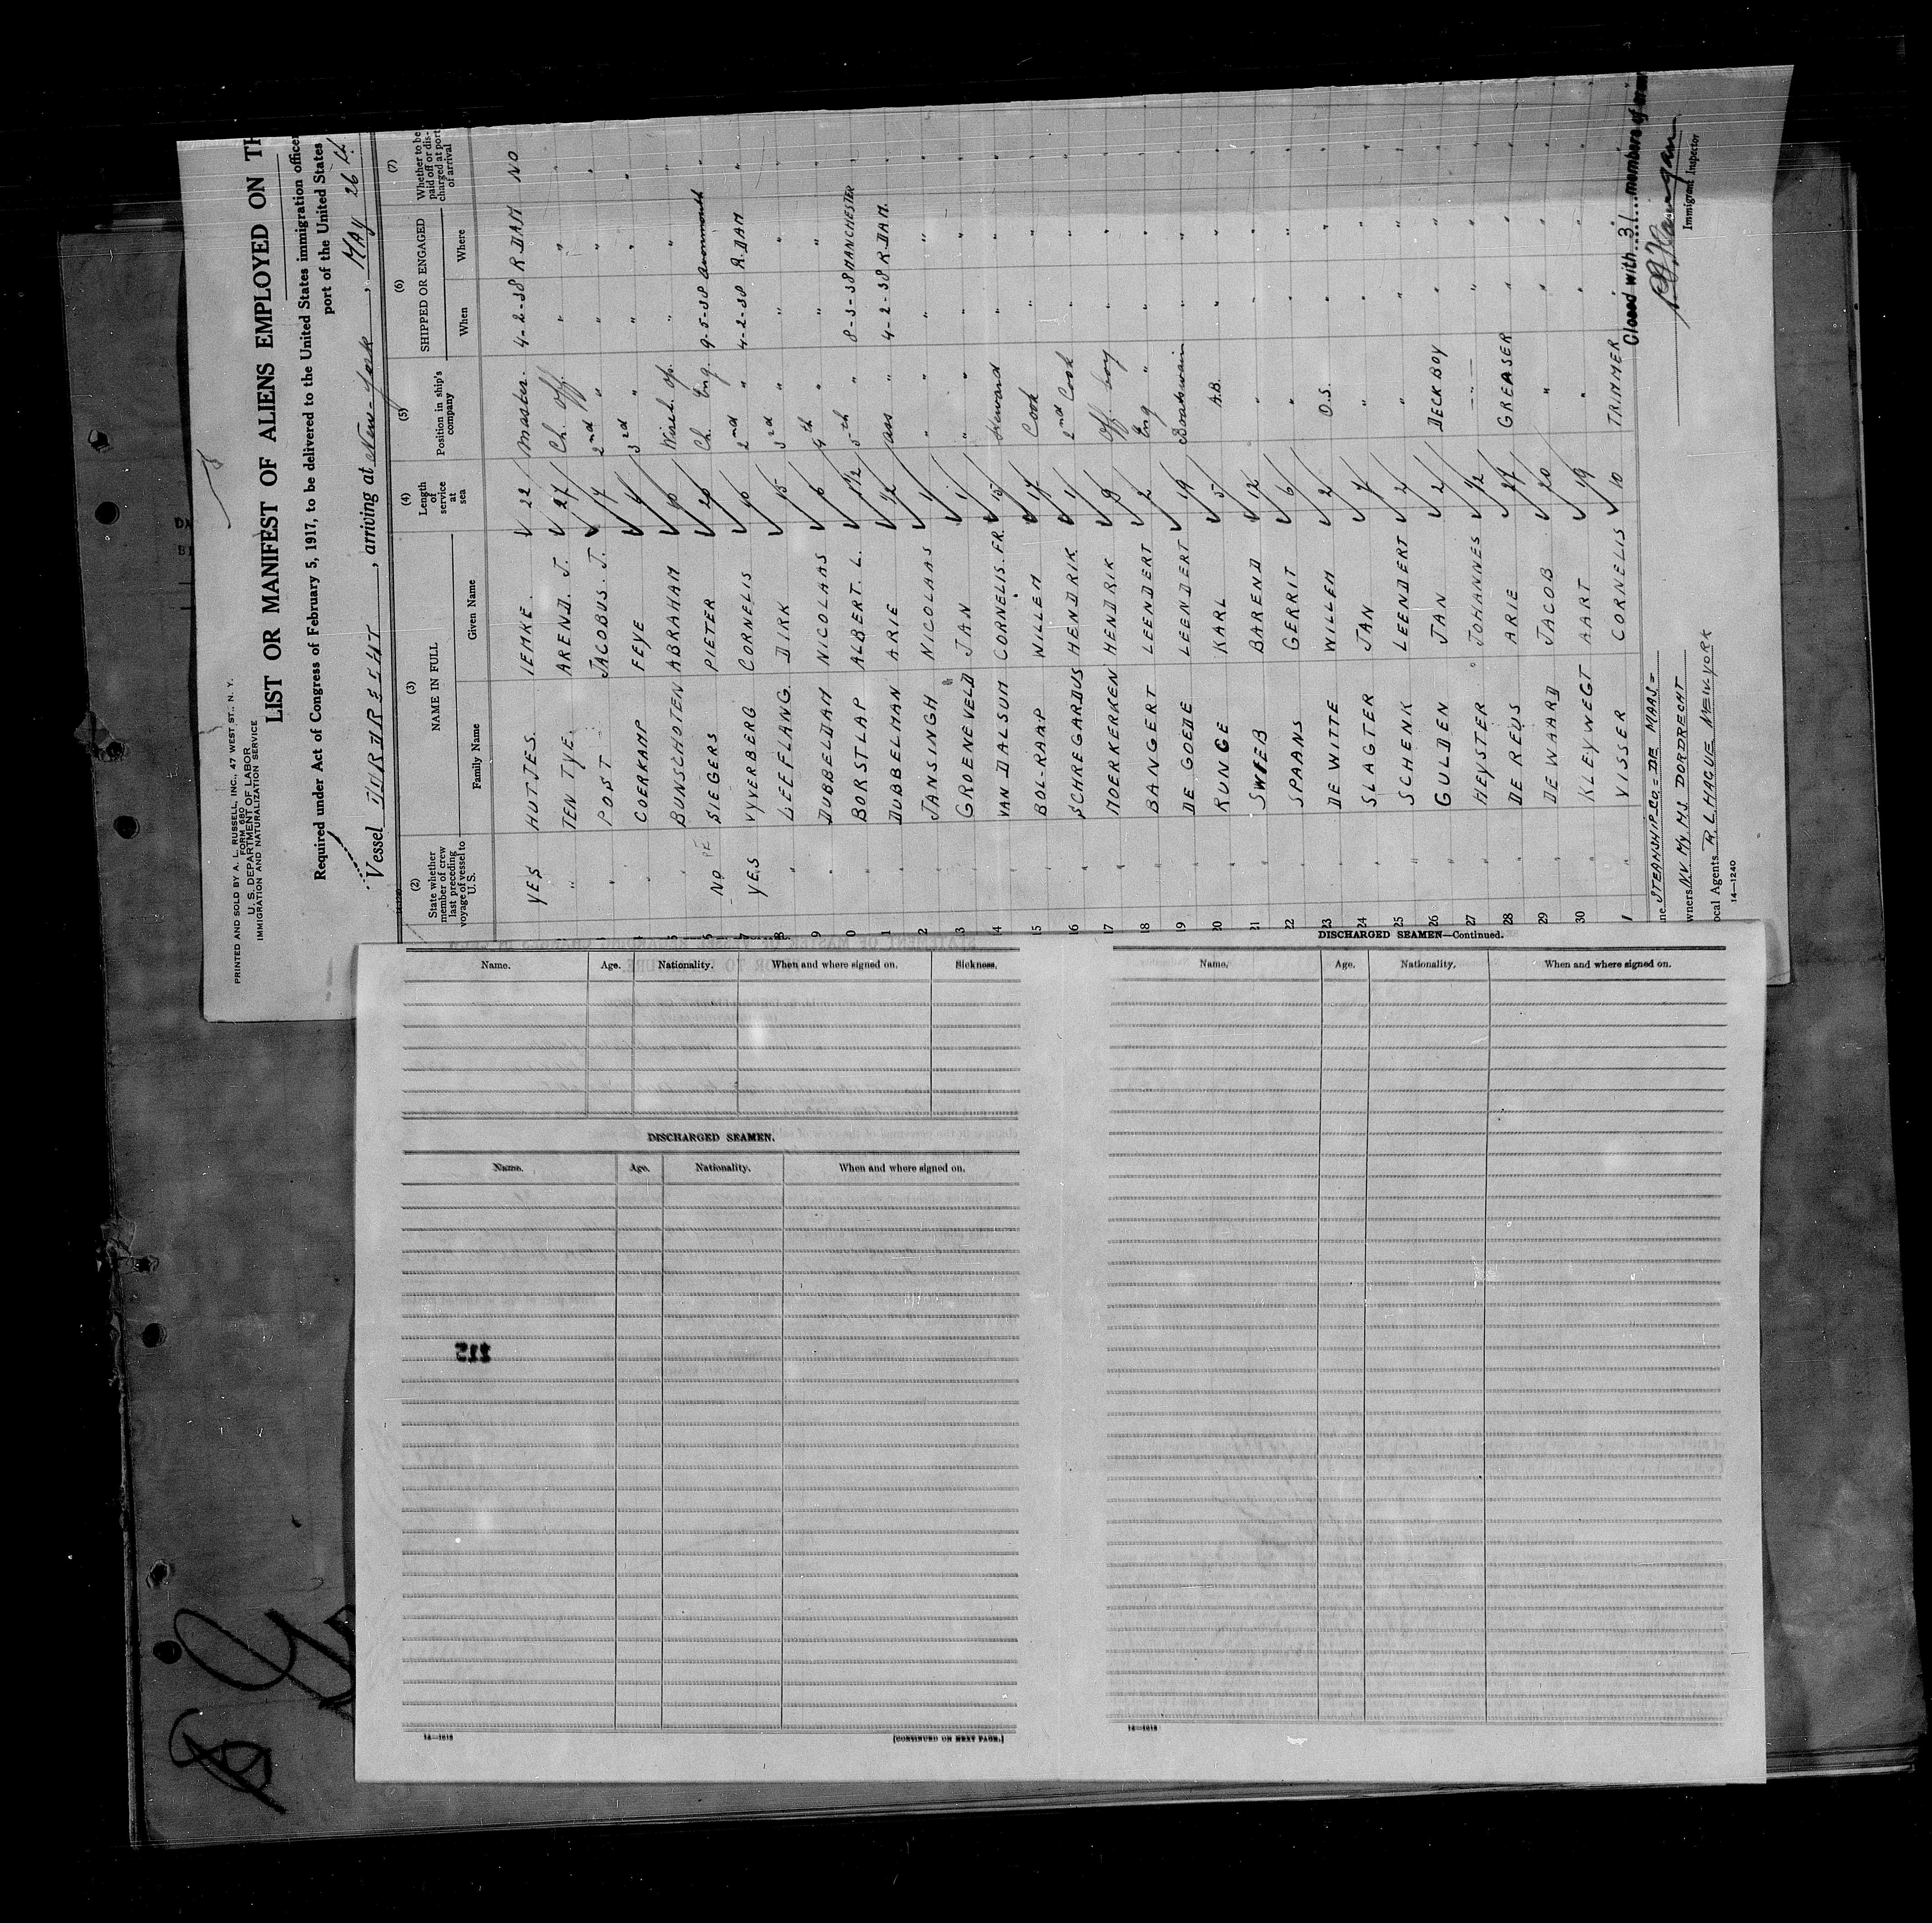 PRINTED AND SOLD BY A. L. RUSSELL, INC., 47 WEST ST., N. Y.
FORM 680
U. S. DEPARTMENT OF LABOR
IMMIGRATION AND NATURALIZATION SERVICE
LIST OR MANIFEST OF ALIENS EMPLOYED ON TH
Required under Act of Congress of February 5, 1917, to be delivered to the United States immigration office
port of the United States
Vessel DORDRECHT, arriving at New-York, MAY 26
(2) (3) (4) (5) (6) (7)
State whether member of crew last preceding voyage of vessel to U.S. NAME IN FULL Length of service at sea Position in ship's company SHIPPED OR ENGAGED Whether to be paid off or discharged at port of arrival
Family Name Given Name When Where
YES HUTJES. IEMKE. 22 Master. 4-2-38 R.DAM NO
" TEN TYE. AREND. J. 27 Ch. Off. " " "
" POST JACOBUS. J. 7 2nd " " " "
" COERKAMP FEYE 4 3rd " " " "
" BUNSCHOTEN ABRAHAM 10 Wirel. Op. " " "
NO SIEGERS PIETER 20 Ch. Eng. 9-5-38 Avonmouth "
YES VYVERBERG CORNELIS 10 2nd " 4-2-38 R.DAM "
" LEEFLANG. DIRK 15 3rd " " "
9 " DUBBELDAM NICOLAAS 6 4th " " "
0 " BORSTLAP ALBERT. L. 1 1/2 5th " 8-3-38 MANCHESTER "
1 " DUBBELMAN ARIE 1/2 ass " 4-2-38 R.DAM. "
2 " JANSINGH NICOLAAS 1 " " " "
3 " GROENEVELD JAN 1 " " " "
14 " VAN DALSUM CORNELIS. FR. 15 steward " " "
15 " BOL-RAAP WILLEM 17 Cook " " "
16 " SCHREGARDUS HENDRIK 1 2nd Cook " " "
17 " MOERKERKEN HENDRIK 9 Off. boy " " "
18 " BANGERT LEENDERT 2 Eng " " " "
19 " DE GOEDE LEENDERT 19 Boatswain " " "
20 " RUNGE KARL 5 A.B. " " "
21 " SWEEB BAREND 12 " " " "
22 " SPAANS GERRIT 6 " " " "
23 " DE WITTE WILLEM 2 O.S. " " "
24 " SLAGTER JAN 7 " " " "
25 " SCHENK LEENDERT 2 " " " "
26 " GULDEN JAN 2 DECKBOY " " "
27 " HEYSTER JOHANNES 1/2 " " " "
28 " DE REUS ARIE 27 GREASER " " "
29 " DE WAARD JACOB 20 " " " "
30 " KLEYWEGT AART 19 " " " "
1 " VISSER CORNELIS 10 TRIMMER " " "
Closed with 31 members of
Immigrant Inspector
ne STEAMSHIP Co = DE MAAS =
wners N.V. My M.S. DORDRECHT
ocal Agents R. L. HAGUE NEW.YORK
14—1240
Name. Age. Nationality. When and where signed on. Sickness.
DISCHARGED SEAMEN.
Name. Age. Nationality. When and where signed on.
14—1618
[CONTINUED ON NEXT PAGE.]
DISCHARGED SEAMEN—Continued.
Name. Age. Nationality. When and where signed on.
14—1618